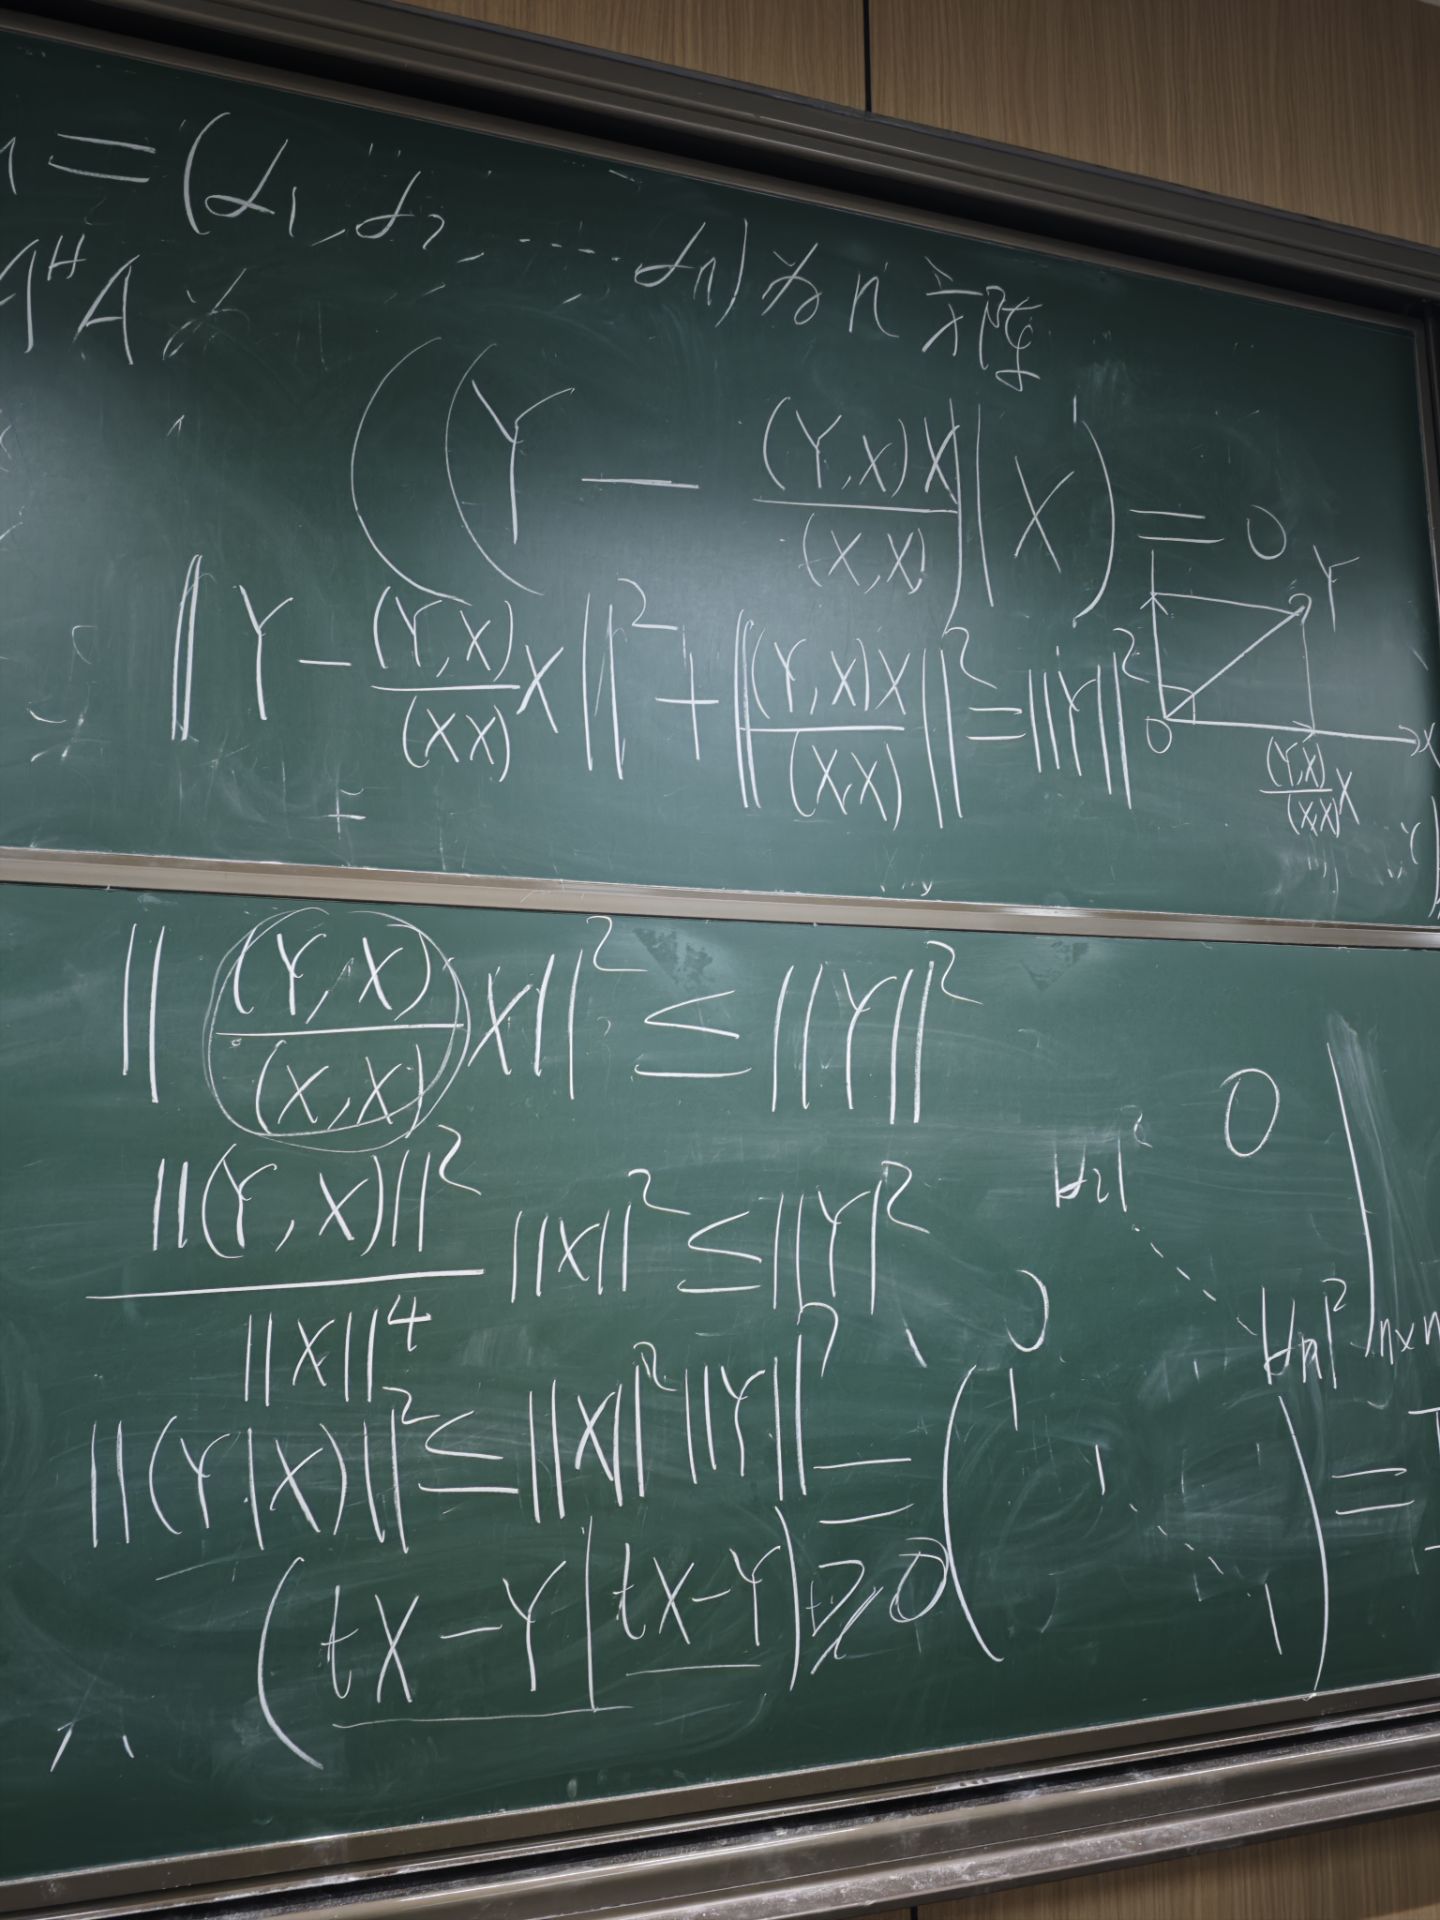 =(α₁, α₂, ... αₙ)为n阶阵
AᴴA
((Y — (Y,X)X/(X,X))|X) = 0
‖Y - (Y,X)/(XX) X‖² + ‖(Y,X)X/(X,X)‖² = ‖Y‖²
Y
0
X
(Y,X)/(X,X) X
‖(Y,X)/(X,X) X‖² ≤ ‖Y‖²
‖(Y,X)‖²/‖X‖⁴ ‖X‖² ≤ ‖Y‖²
‖(Y|X)‖² ≤ ‖X‖²‖Y‖²
(tX-Y|tX-Y) ≥ 0
0
0
n×n
= (1 1 ⋱ 1) =